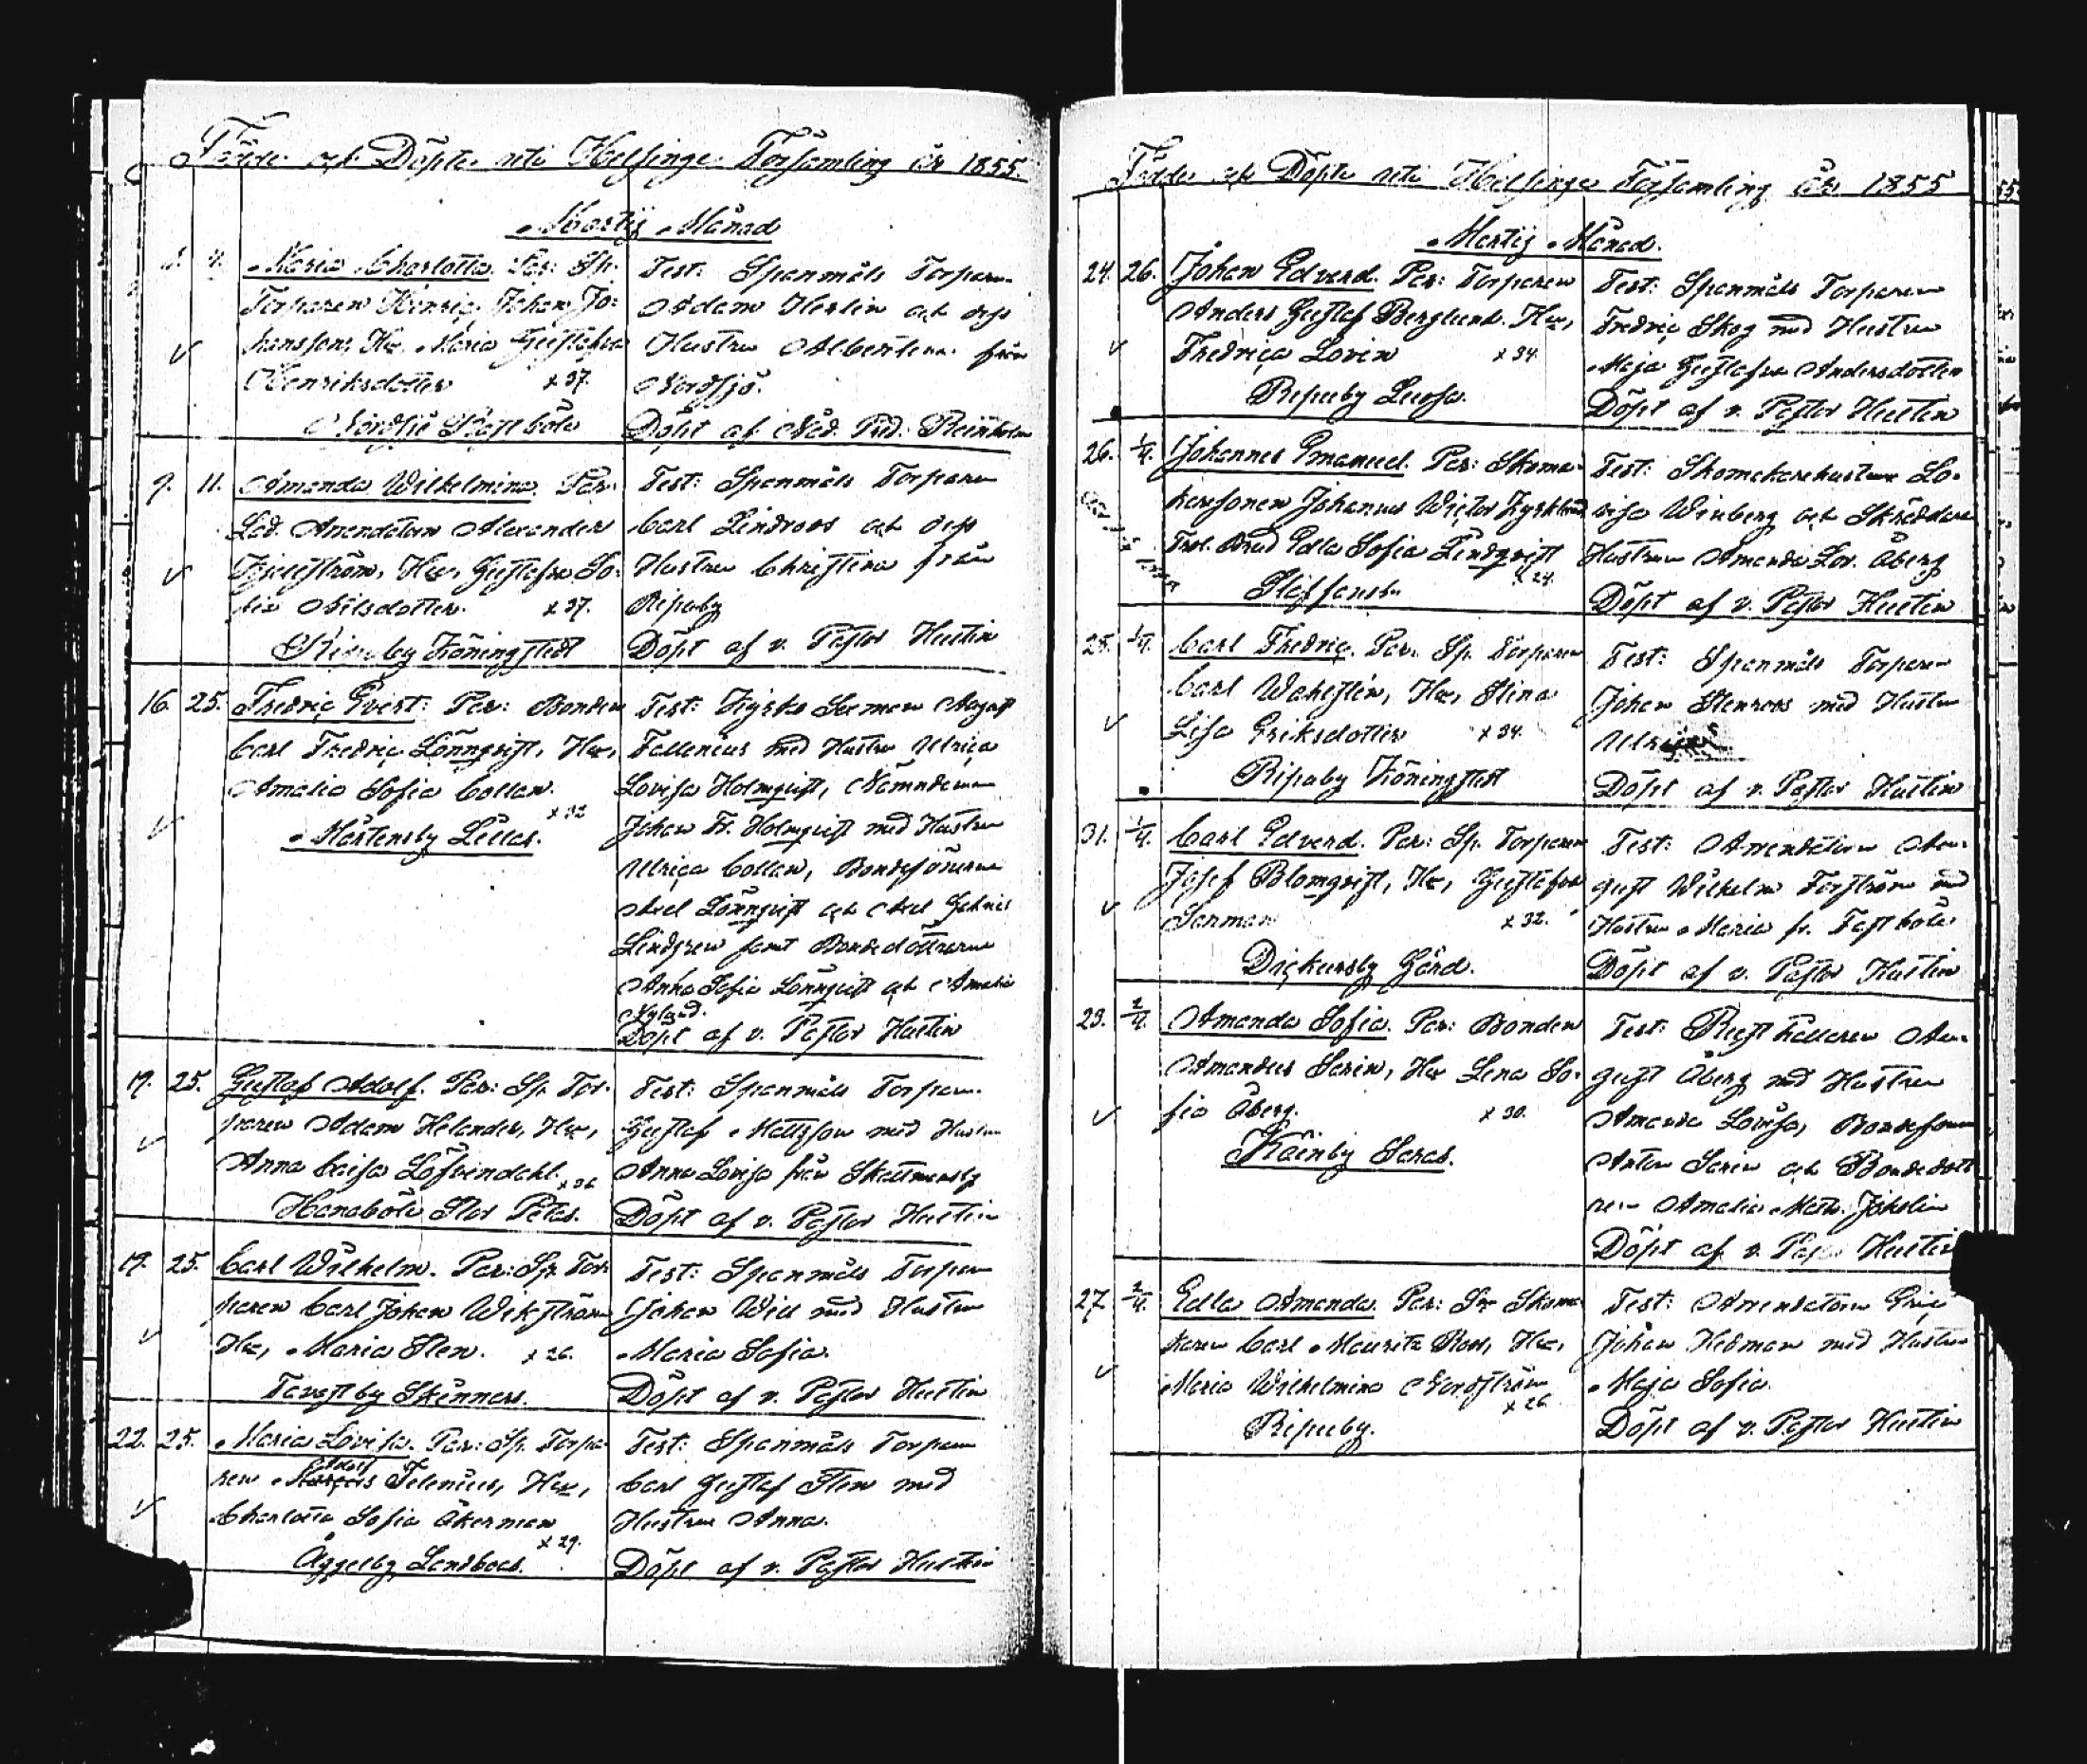 Födde och Döpte uti Helsinge Församling år 1855.
Martij Månad
4. Maria Charlotta. Par: Sp.
Torparen Henric Johan Jo-
hansson, Hu, Maria Gustafva
Henriksdotter x 37.
Nordsjö Rastböle
Test: Spanmåls Torparen
Adam Herlin och dess
Hustru Albertina från
Nordsjö.
Döpt af Nåd. Pred. Reinholm
9. 11. Amanda Wilhelmina. Par:
Lad. Arrendatorn Alexander
Hu, Gustafva So-
fia Nilsdotter. x 37.
Ripuby Köningstedt
Test: Spanmåls Torparen
Carl Lindroos och dess
Hustru Christina från
Ripuby
Döpt af v. Pastor Hustin
16. 25. Fredric Evert. Par: Bonden
Carl Fredric Lönnqvist, Hu,
Amalia Sofia Collan.
x 32
Mårtensby Lillas.
Test: Kyrko
Fallenius med Hustru Ulrica
Lovisa Holmqvist, Nämndeman
Johan Fr. Holmqvist med Hustru
Ulrica Collan, Bondesönerne
Axel Lönnqvist och Axel Gabriel
Lindgren samt Bondedöttrarne
Anna Sofia Lönnqvist och Amalia
Nylund.
Döpt af v. Pastor Hustin
19. 25. Gustaf Adolf. Par: Sp. Tor-
paren Adam Helander, Hu,
Anna Caisa Löfvendahl. x 36
Hanaböle Stor Petas.
Test: Spanmåls Torparen
Gustaf Mattsson med Hustru
Anna Lovisa från Skattmansby
Döpt af v. Pastor Hustin
19. 25. Carl Wilhelm. Par: Sp. Tor-
paren Carl Johan Wikström
Hu, Maria Sten. x 26.
Tavastby Skinnars.
Test: Spanmåls Torparen
Johan Will med Hustru
Maria Sofia.
Döpt af v. Pastor Hustin
22. 25. Maria Lovisa. Par: Sp. Torpa-
Adolf
ren Marcus Felenius, Hu,
Charlotta Sofia Åkerman
x 29.
Åggelby Landboas.
Test: Spanmåls Torparen
Carl Gustaf Sten med
Hustru Anna.
Döpt af v. Pastor Hustin
Födde och Döpte uti Helsinge Församling år 1855
Martij Månad.
24. 26. Johan Edvard. Par: Torparen
Anders Gustaf Berglund. Hu,
Fredrica Lovin x 34.
Ripuby Luossa.
Test: Spanmåls Torparen
Fredric Skog med Hustru
Maja Gustafva Andersdotter
Döpt af v. Pastor Hustin
26. 1/4. Johannes Emanuel. Par: Skoma-
karesonen Johannes Wictor Kyrklund
Trol. Brud Edla Sofia Lindqvist
x 24.
Staffansby
Test: Skomakarehustrun Lo-
visa Winberg och Skräddare
Hustrun Amanda Lov. Åberg
Döpt af v. Pastor Hustin
28. 1/4. Carl Fredric. Par: Sp. Torparen
Carl Wahlstén, Hu, Stina
Lisa Eriksdotter x 34.
Ripuby Köningstedt
Test: Spanmåls Torparen
Johan Stenroos med Hustru
Ulrica
Döpt af v. Pastor Hustin
31. 1/4. Carl Edvard. Par: Sp. Torparen
Josef Blomqvist, Hu, Gustafva
Sanman x 32.
Dickursby Gård.
Test: Arrendatorn Au-
gust Wilhelm Forström med
Hustru Maria fr. Fastböle
Döpt af v. Pastor Hustin
29. 2/4. Amanda Sofia. Par: Bonden
Amandus Sarin, Hu Lena So-
fia Åberg. x 30.
Kåinby Saras.
Test: Rusthållaren Au-
gust Åberg med Hustru
Amanda Lovisa, Bondesonen
Anton Sarin och Bondedott-
ren Amalia Math. Jokelin
Döpt af v. Pastor Hustin
27. 2/4. Edla Amanda. Par: Sn Skoma-
karen Carl Mauritz Roos, Hu,
Maria Wilhelmina Nordström
x 26
Ripuby.
Test: Arrendatorn Eric
Johan Hedman med Hustru
Maja Sofia.
Döpt af v. Pastor Hustin